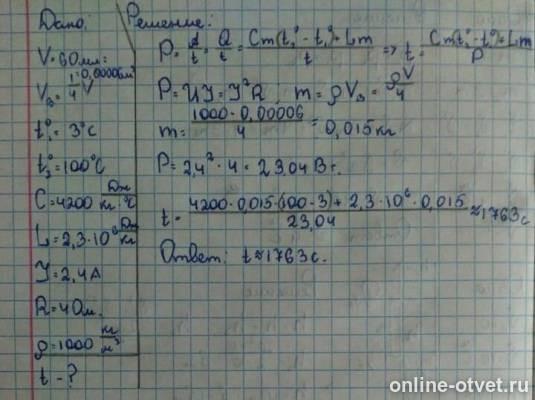 Дано:
V=60мл=
=0,00006м³
Vв=1/4 V
t₁°=3°C
t₂°=100°C
C=4200 Дж/кг·°C
L=2,3·10⁶ Дж/кг
J=2,4A
R=4Ом.
ρ=1000 кг/м³
t-?
Решение:
P=A/t=Q/t=(Cm(t₂°-t₁°)+Lm)/t => t=(Cm(t₂°-t₁°)+Lm)/P
P=UJ=J²R m=ρVв=ρV/4
m=(1000·0,00006)/4=0,015кг
P=2,4²·4=23,04Вт.
t=(4200·0,015·(100-3)+2,3·10⁶·0,015)/23,04≈1763с
Ответ: t≈1763с.
online-otvet.ru